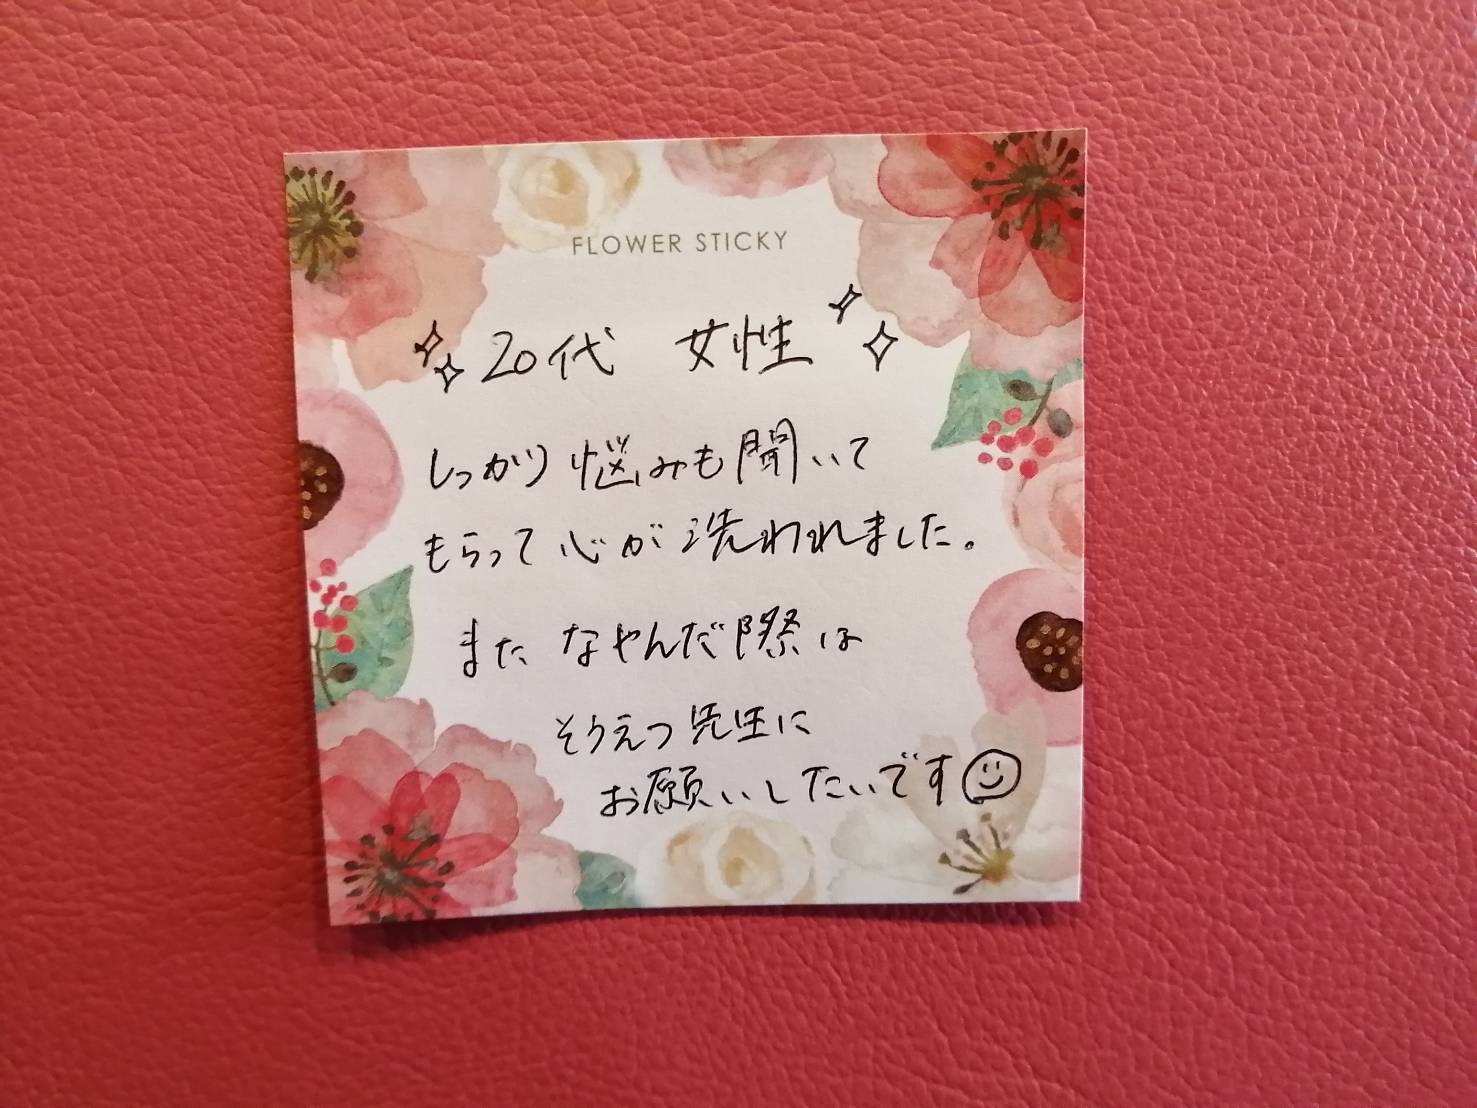 FLOWER STICKY
20代 女性
しっかり悩みも聞いて
もらって心が洗われました。
また なやんだ際は
そうえつ先生に
お願いしたいです